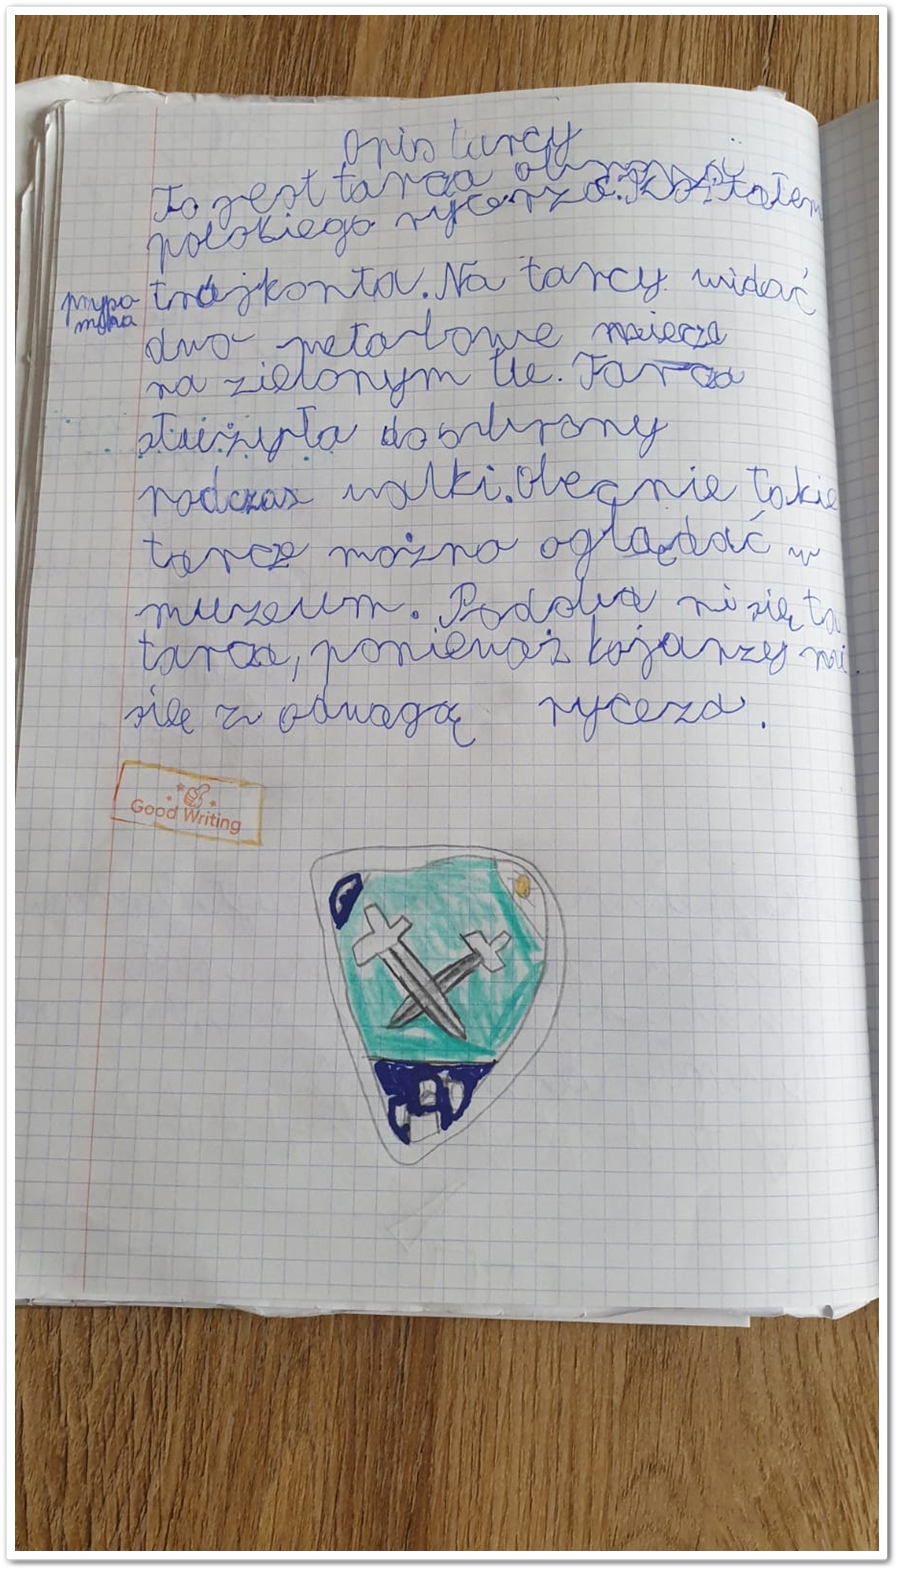 Opis tarcy
To jest tarcza
polskiego rycerza. Kształtem
przypo-
mina
trójkonta. Na tarcy widać
dwa metalowe miecze
na zielonym tle. Tarcza
służyła do obrony
podczas walki. Obecnie takie
tarcze można oglądać w
muzeum. Podoba mi się ta
tarcza, ponieważ kojarzy mi
się z odwagą ryceza.
Good Writing